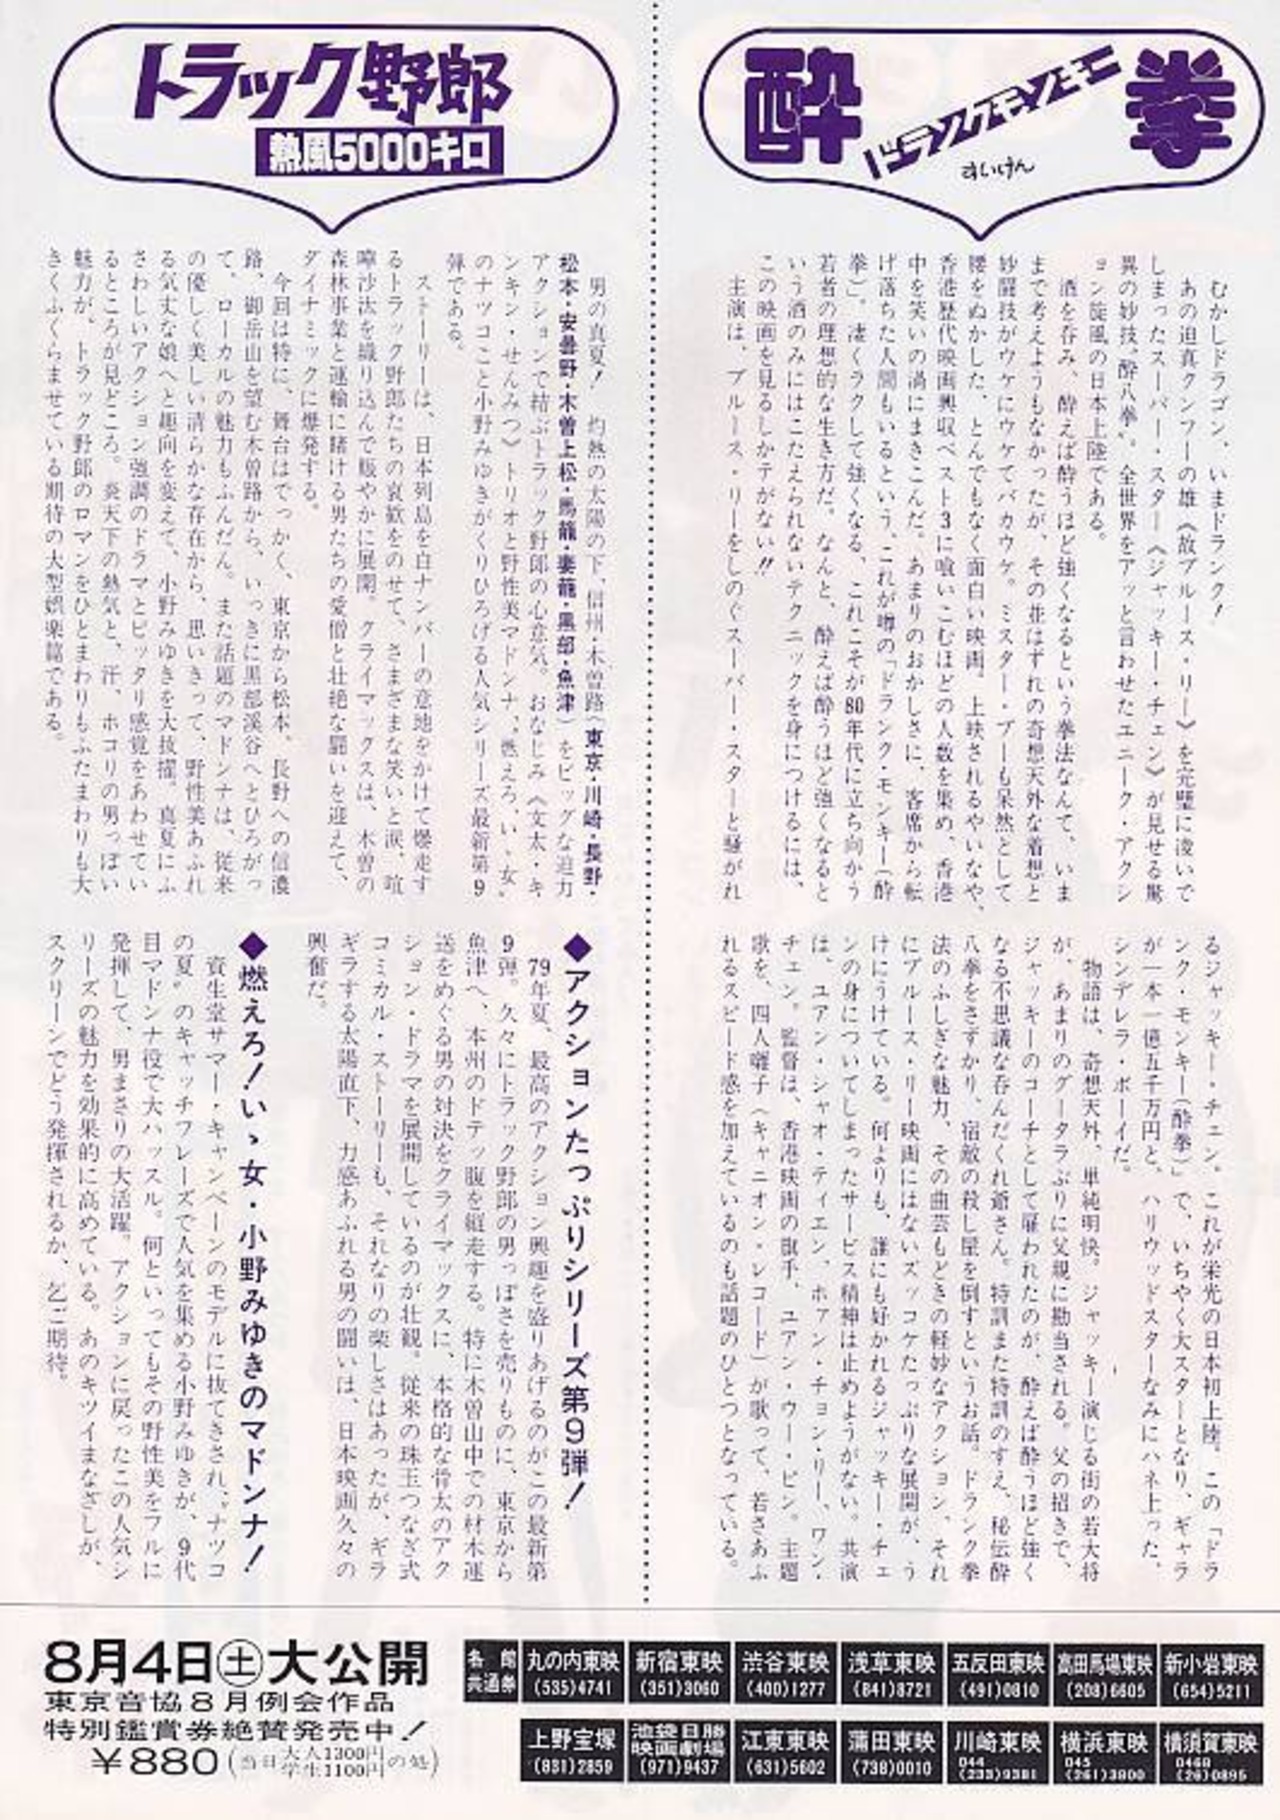 酔拳
ドランクモンキー
すいけん
むかしドラゴン、いまドランク!
あの迫真クンフーの雄《故ブルース・リー》を完璧に凌いで
しまったスーパー・スター《ジャッキー・チェン》が見せる驚
異の妙技〝酔八拳〟。全世界をアッと言わせたユニーク・アクシ
ョン旋風の日本上陸である。
酒を呑み、酔えば酔うほど強くなるという拳法なんて、いま
まで考えようもなかったが、その並はずれの奇想天外な着想と
妙闘技がウケにウケてバカウケ。ミスター・ブーも呆然として
腰をぬかした、とんでもなく面白い映画。上映されるやいなや、
香港歴代映画興収ベスト3に喰いこむほどの人数を集め、香港
中を笑いの渦にまきこんだ。あまりのおかしさに、客席から転
げ落ちた人間もいるという、これが噂の「ドランク・モンキー(酔
拳)」。凄くラクして強くなる、これこそが80年代に立ち向かう
若者の理想的な生き方だ。なんと、酔えば酔うほど強くなると
いう酒のみにはこたえられないテクニックを身につけるには、
この映画を見るしかテがない!!
主演は、ブルース・リーをしのぐスーパー・スターと騒がれ
るジャッキー・チェン。これが栄光の日本初上陸。この「ドラ
ンク・モンキー(酔拳)」で、いちやく大スターとなり、ギャラ
が一本一億五千万円と、ハリウッドスターなみにハネ上った、
シンデレラ・ボーイだ。
物語は、奇想天外、単純明快。ジャッキー演じる街の若大将
が、あまりのグータラぶりに父親に勘当される。父の招きで、
ジャッキーのコーチとして雇われたのが、酔えば酔うほど強く
なる不思議な呑んだくれ爺さん。特訓また特訓のすえ、秘伝酔
八拳をさずかり、宿敵の殺し屋を倒すというお話。ドランク拳
法のふしぎな魅力、その曲芸もどきの軽妙なアクション、それ
にブルース・リー映画にはないズッコケたっぷりな展開が、う
けにうけている。何よりも、誰にも好かれるジャッキー・チェ
ンの身についてしまったサービス精神は止めようがない。共演
は、ユアン・シャオ・ティエン、ホアン・チョン・リー、ワン・
チェン。監督は、香港映画の旗手、ユアン・ウー・ピン。主題
歌を、四人囃子(キャニオン・レコード)が歌って、若さあふ
れるスピード感を加えているのも話題のひとつとなっている。
トラック野郎
熱風5000キロ
男の真夏! 灼熱の太陽の下、信州・木曽路(東京・川崎・長野・
松本・安曇野・木曽上松・馬籠・妻籠・黒部・魚津)をビッグな迫力
アクションで結ぶトラック野郎の心意気。おなじみ《文太・キ
ンキン・せんみつ》トリオと野性美マドンナ、〝燃えろ、いゝ女〟
のナツコこと小野みゆきがくりひろげる人気シリーズ最新第9
弾である。
ストーリーは、日本列島を白ナンバーの意地をかけて爆走す
るトラック野郎たちの哀歓をのせて、さまざまな笑いと涙、喧
嘩沙汰を織り込んで賑やかに展開。クライマックスは、木曽の
森林事業と運輸に賭ける男たちの愛憎と壮絶な闘いを迎えて、
ダイナミックに爆発する。
今回は特に、舞台はでっかく、東京から松本、長野への信濃
路、御岳山を望む木曽路から、いっきに黒部渓谷へとひろがっ
て、ローカルの魅力もふんだん。また話題のマドンナは、従来
の優しく美しい清らかな存在から、思いきって、野性美あふれ
る気丈な娘へと趣向を変えて、小野みゆきを大抜擢。真夏にふ
さわしいアクション強調のドラマとピッタリ感覚をあわせてい
るところが見どころ。炎天下の熱気と、汗、ホコリの男っぽい
魅力が、トラック野郎のロマンをひとまわりもふたまわりも大
きくふくらませている期待の大型娯楽篇である。
◆アクションたっぷりシリーズ第9弾!
79年夏、最高のアクション興趣を盛りあげるのがこの最新第
9弾。久々にトラック野郎の男っぽさを売りものに、東京から
魚津へ、本州のドテッ腹を縦走する。特に木曽山中での材木運
送をめぐる男の対決をクライマックスに、本格的な骨太のアク
ション・ドラマを展開しているのが壮観。従来の珠玉つなぎ式
コミカル・ストーリーも、それなりの楽しさはあったが、ギラ
ギラする太陽直下、力感あふれる男の闘いは、日本映画久々の
興奮だ。
◆燃えろ!いゝ女・小野みゆきのマドンナ!
資生堂サマー・キャンペーンのモデルに抜てきされ、〝ナツコ
の夏〟のキャッチフレーズで人気を集める小野みゆきが、9代
目マドンナ役で大ハッスル。何といってもその野性美をフルに
発揮して、男まさりの大活躍。アクションに戻ったこの人気シ
リーズの魅力を効果的に高めている。あのキツイまなざしが、
スクリーンでどう発揮されるか、乞ご期待。
8月4日㊏大公開
東京音協8月例会作品
特別鑑賞券絶賛発売中!
¥880(当日大人1300円学生1100円の処)
各館共通券
丸の内東映 (535)4741
新宿東映 (351)3060
渋谷東映 (400)1277
浅草東映 (841)8721
五反田東映 (491)0810
高田馬場東映 (208)6605
新小岩東映 (654)5211
上野宝塚 (831)2859
池袋日勝映画劇場 (971)9437
江東東映 (631)5602
蒲田東映 (738)0010
川崎東映 044(233)9381
横浜東映 045(261)3800
横須賀東映 0468(26)0895